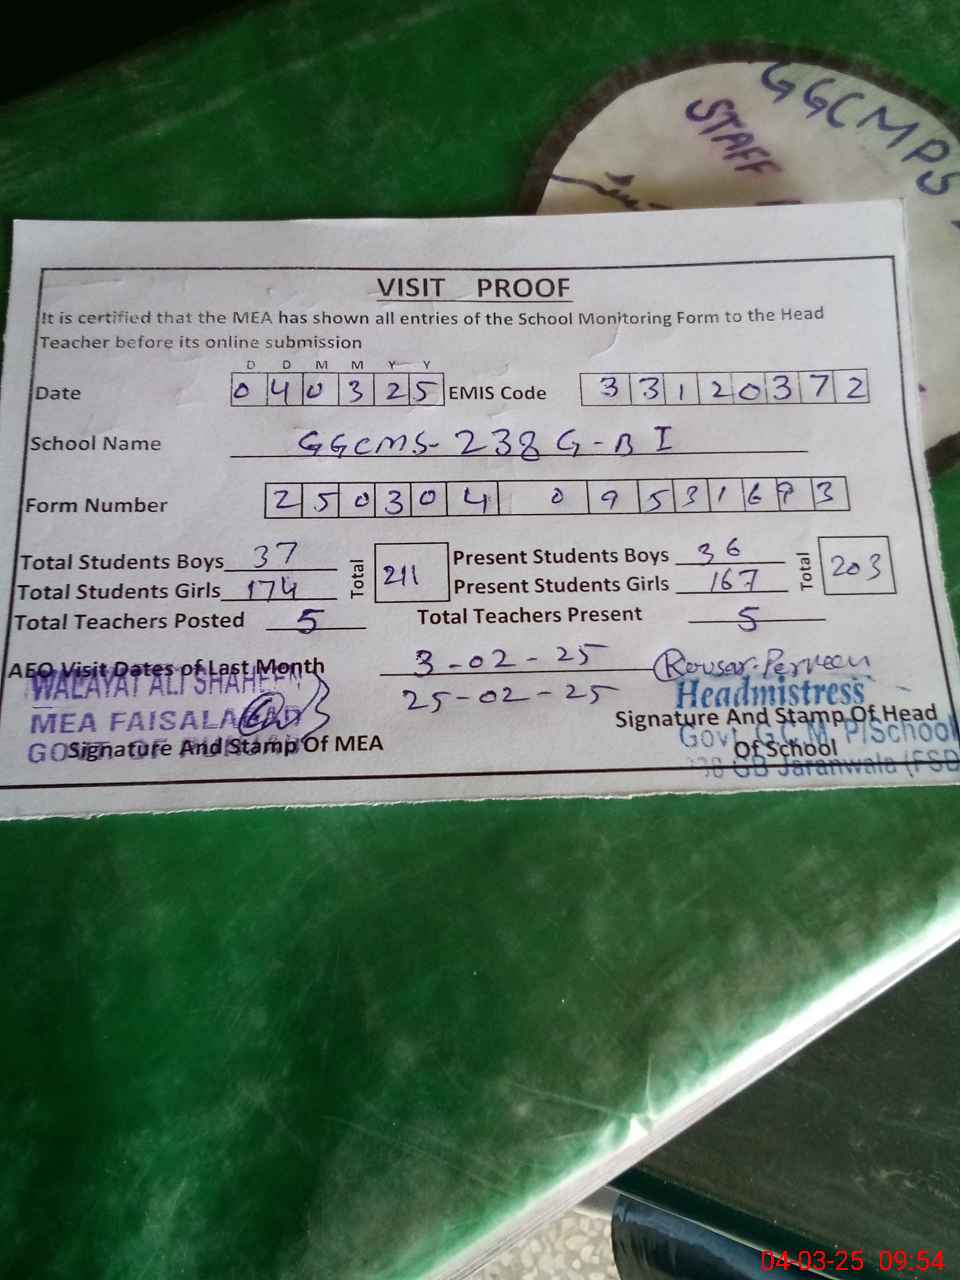 GGCMPS
STAFF
VISIT PROOF
It is certified that the MEA has shown all entries of the School Monitoring Form to the Head
Teacher before its online submission
D D M M Y Y
Date 0 4 0 3 2 5 EMIS Code 3 3 1 2 0 3 7 2
School Name GGCMS-238 G-B I
Form Number 2 5 0 3 0 4 0 9 5 3 1 6 9 3
Total Students Boys 37 Total 211 Present Students Boys 36 Total 203
Total Students Girls 174 Present Students Girls 167
Total Teachers Posted 5 Total Teachers Present 5
AEO Visit Dates of Last Month 3-02-25
25-02-25
WALAYAT ALI SHAHEEN
MEA FAISALABAD
Signature And Stamp Of MEA
Kousar Perveen
Headmistress
Signature And Stamp Of Head
Of School
Govt G.C.M. P/School
238 GB Jaranwala (FSD
04-03-25 09:54